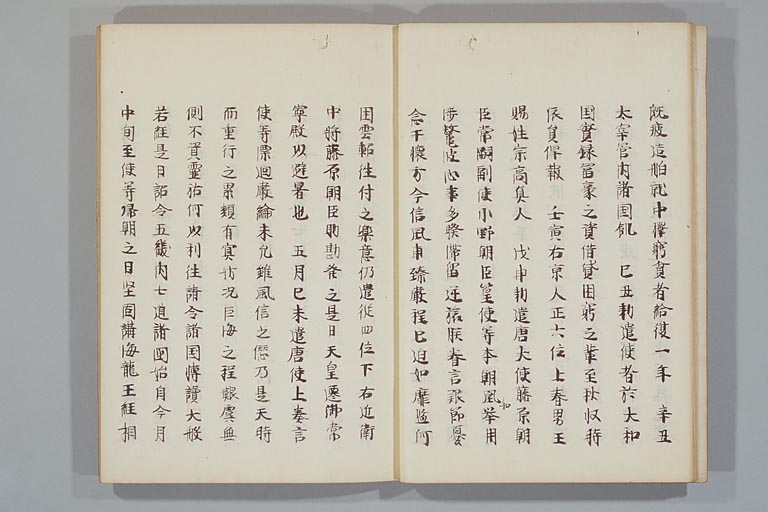 既疲造舶就中擇窮貧者給復一年 辛丑
太宰管内諸国飢 己丑勅遣使者於大和
国實録富豪之資借貸困窮之輩至秋収時
依員俾報 壬寅右京人正六位上春男王
賜姓宗高真人 戊申勅遣唐大使藤原朝
臣常嗣副使小野朝臣篁使等本朝風挙用
渉鼇波心事多暌滞留逆旅朕眷言艱節憂
念于懐方今信風甫臻厳程已迫如靡盬何
因雲軺往付之樂意仍遣従四位下右近衛
中将藤原朝臣助勘発之是日天皇遷御常
寧殿以避暑也 五月己未遣唐使上奏言
使等漂廻厳綸未允雖風信之愆乃是天時
而重行之累類有冥妨况巨海之程艱虞無
側不資靈祐何以利往請令諸国轉讀大般
若経是日詔令五畿内七道諸国始自今月
中旬至使等帰朝之日坚固講海龍王経相